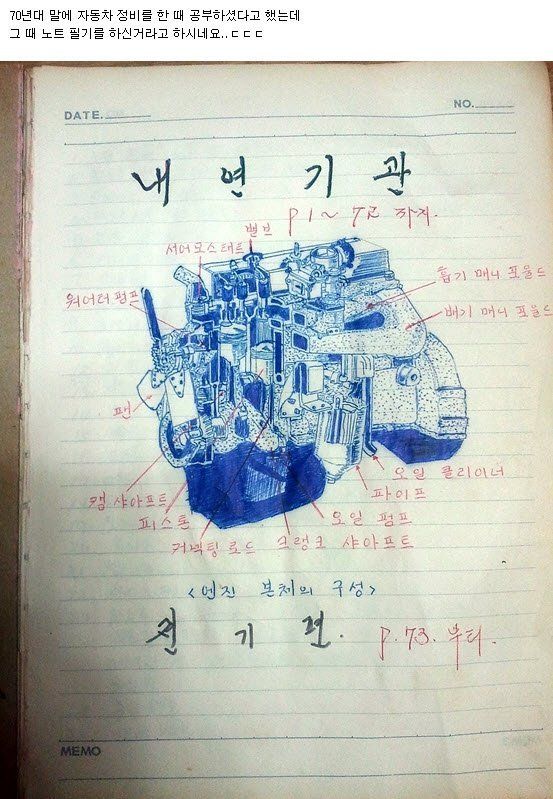 70년대 말에 자동차 정비를 한 때 공부하셨다고 했는데
그 때 노트 필기를 하신거라고 하시네요..ㄷㄷㄷ
DATE.
NO.
내 연 기 관
P 1 ~ 72 까지.
밸브
서어모스태트
흡기 매니 포울드
워어터 펌프
배기 매니 포울드
팬
오일 클리이너
캠 샤아프트
파이프
피스톤
오일 펌프
커넥팅 로드
크랭크 샤아프트
<엔진 본체의 구성>
전 기 편.
P. 73. 부터.
MEMO